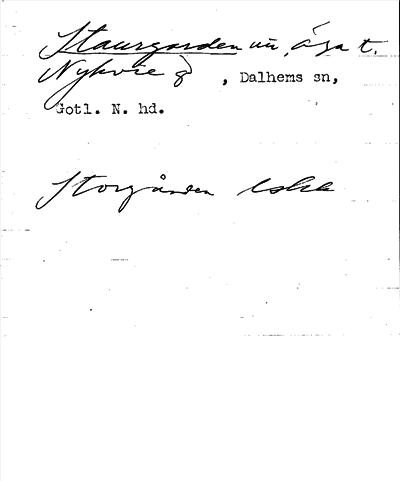 Staurgarden nu äga t.
Nykvie g , Dalhems sn,
Gotl. N. hd.
Storgården